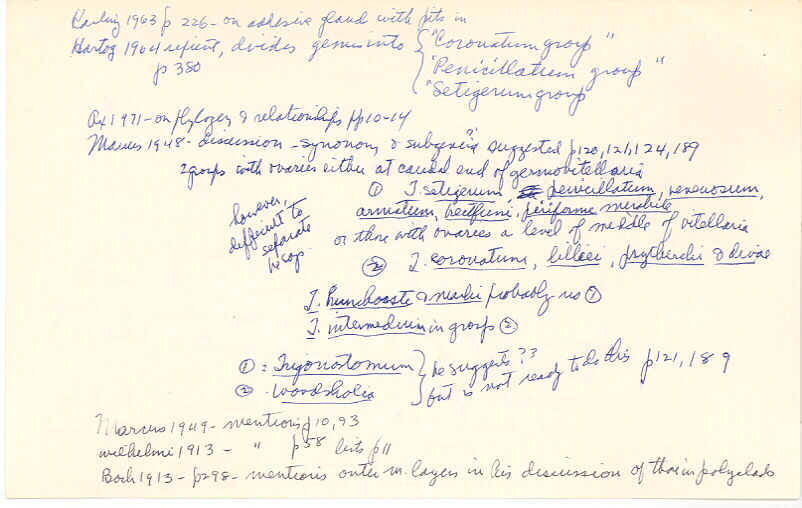 Karling 1963 p 226 - on adhesive gland with pits in
Hartog 1964 repient, divides genus into { "Coronatum group"
p 380 "Penicillatum group"
"Setigerum group
Ax 1971 - on phylogeny & relationships pp 10-14
Marcus 1948 - discussion - synonomy & subgenera ?! suggested p 120, 121, 124, 189
2 groups with ovaries either at caudal end of germovitellaria
① T. setigerum, penicillatum, venenosum,
armatum, breitfussi, piriforme mirabile
or those with ovaries a level of meddle of vitellaria
however, difficult to separate he says
② T. coronatum, lilliei, prytherchi & divae
T. & marki probably no ①
T. intermedium in group ②
① = Trigonostomum } he suggests ??
② = Woodsholia but is not ready to do this p 121, 189
Marcus 1949 - mentions p 10, 93
Wilhelmi 1913 - " p 58 lists p 11
Bock 1913 - p 298 - mentions outer m. layers in his discussion of that in polyclads